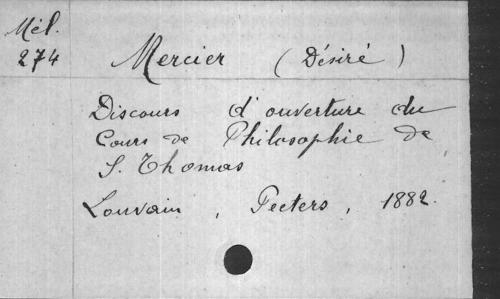 Mél.
274
Mercier (Désiré)
Discours d'ouverture du
Cours de Philosophie de
S. Thomas
Louvain, Peeters, 1882.